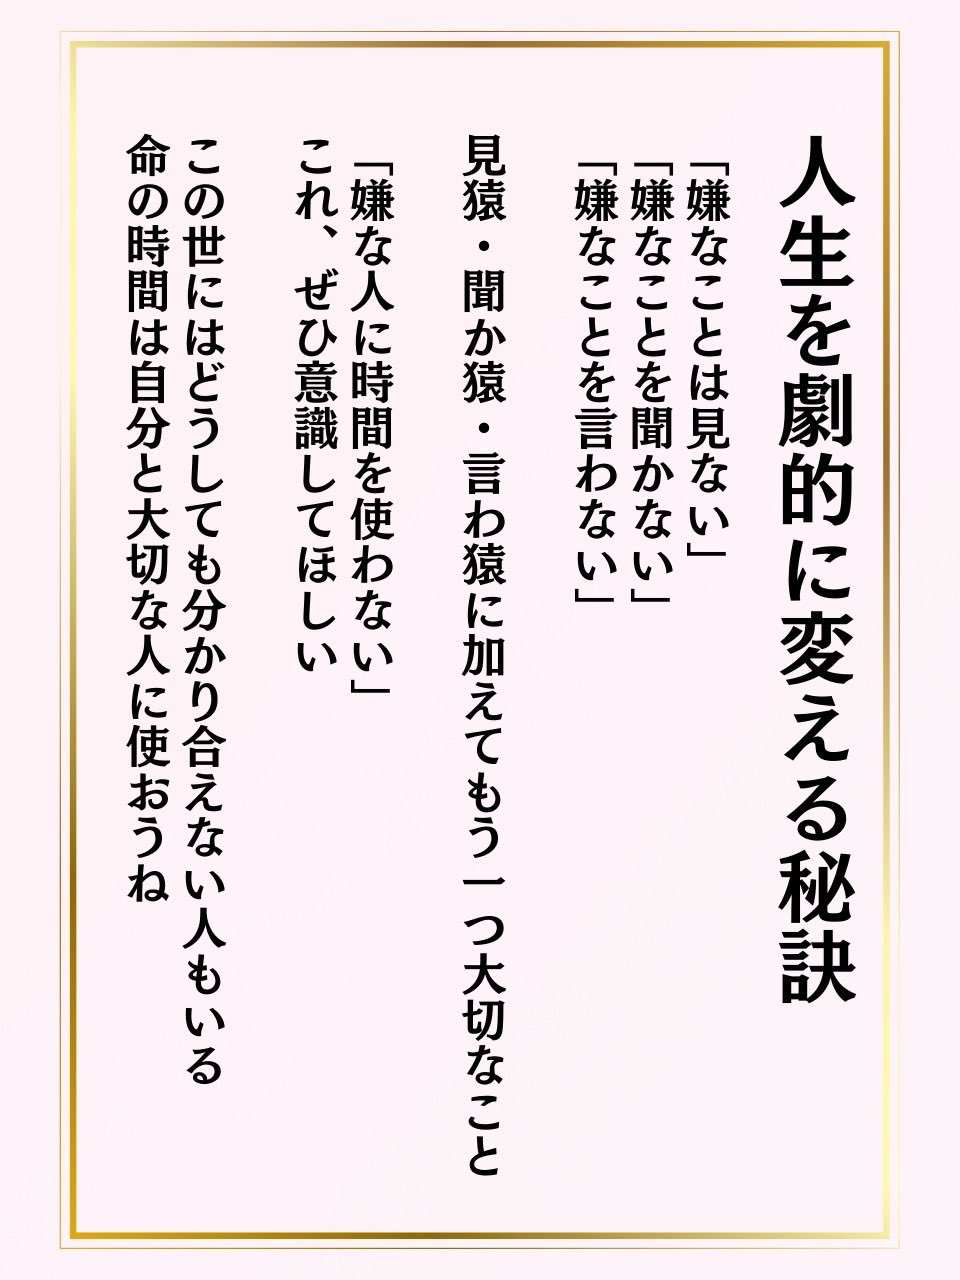 人生を劇的に変える秘訣
「嫌なことは見ない」
「嫌なことを聞かない」
「嫌なことを言わない」
見猿・聞か猿・言わ猿に加えてもう一つ大切なこと
「嫌な人に時間を使わない」
これ、ぜひ意識してほしい
この世にはどうしても分かり合えない人もいる
命の時間は自分と大切な人に使おうね